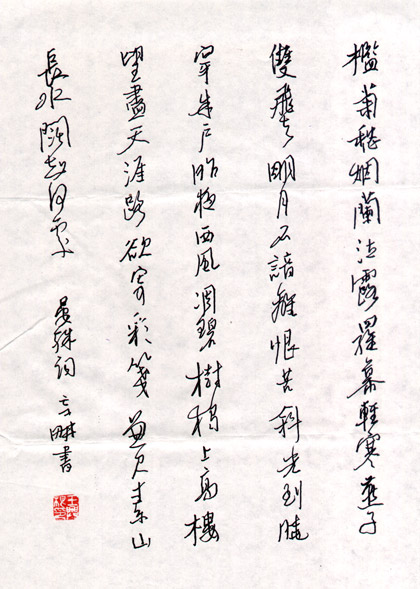 檻菊愁烟蘭泣露羅幕輕寒燕子
雙飛去明月不諳離恨苦斜光到曉
穿朱戶昨夜西風凋碧樹獨上高樓
望盡天涯路欲寄彩箋兼尺素山
長水闊知何處
晏殊詞 書